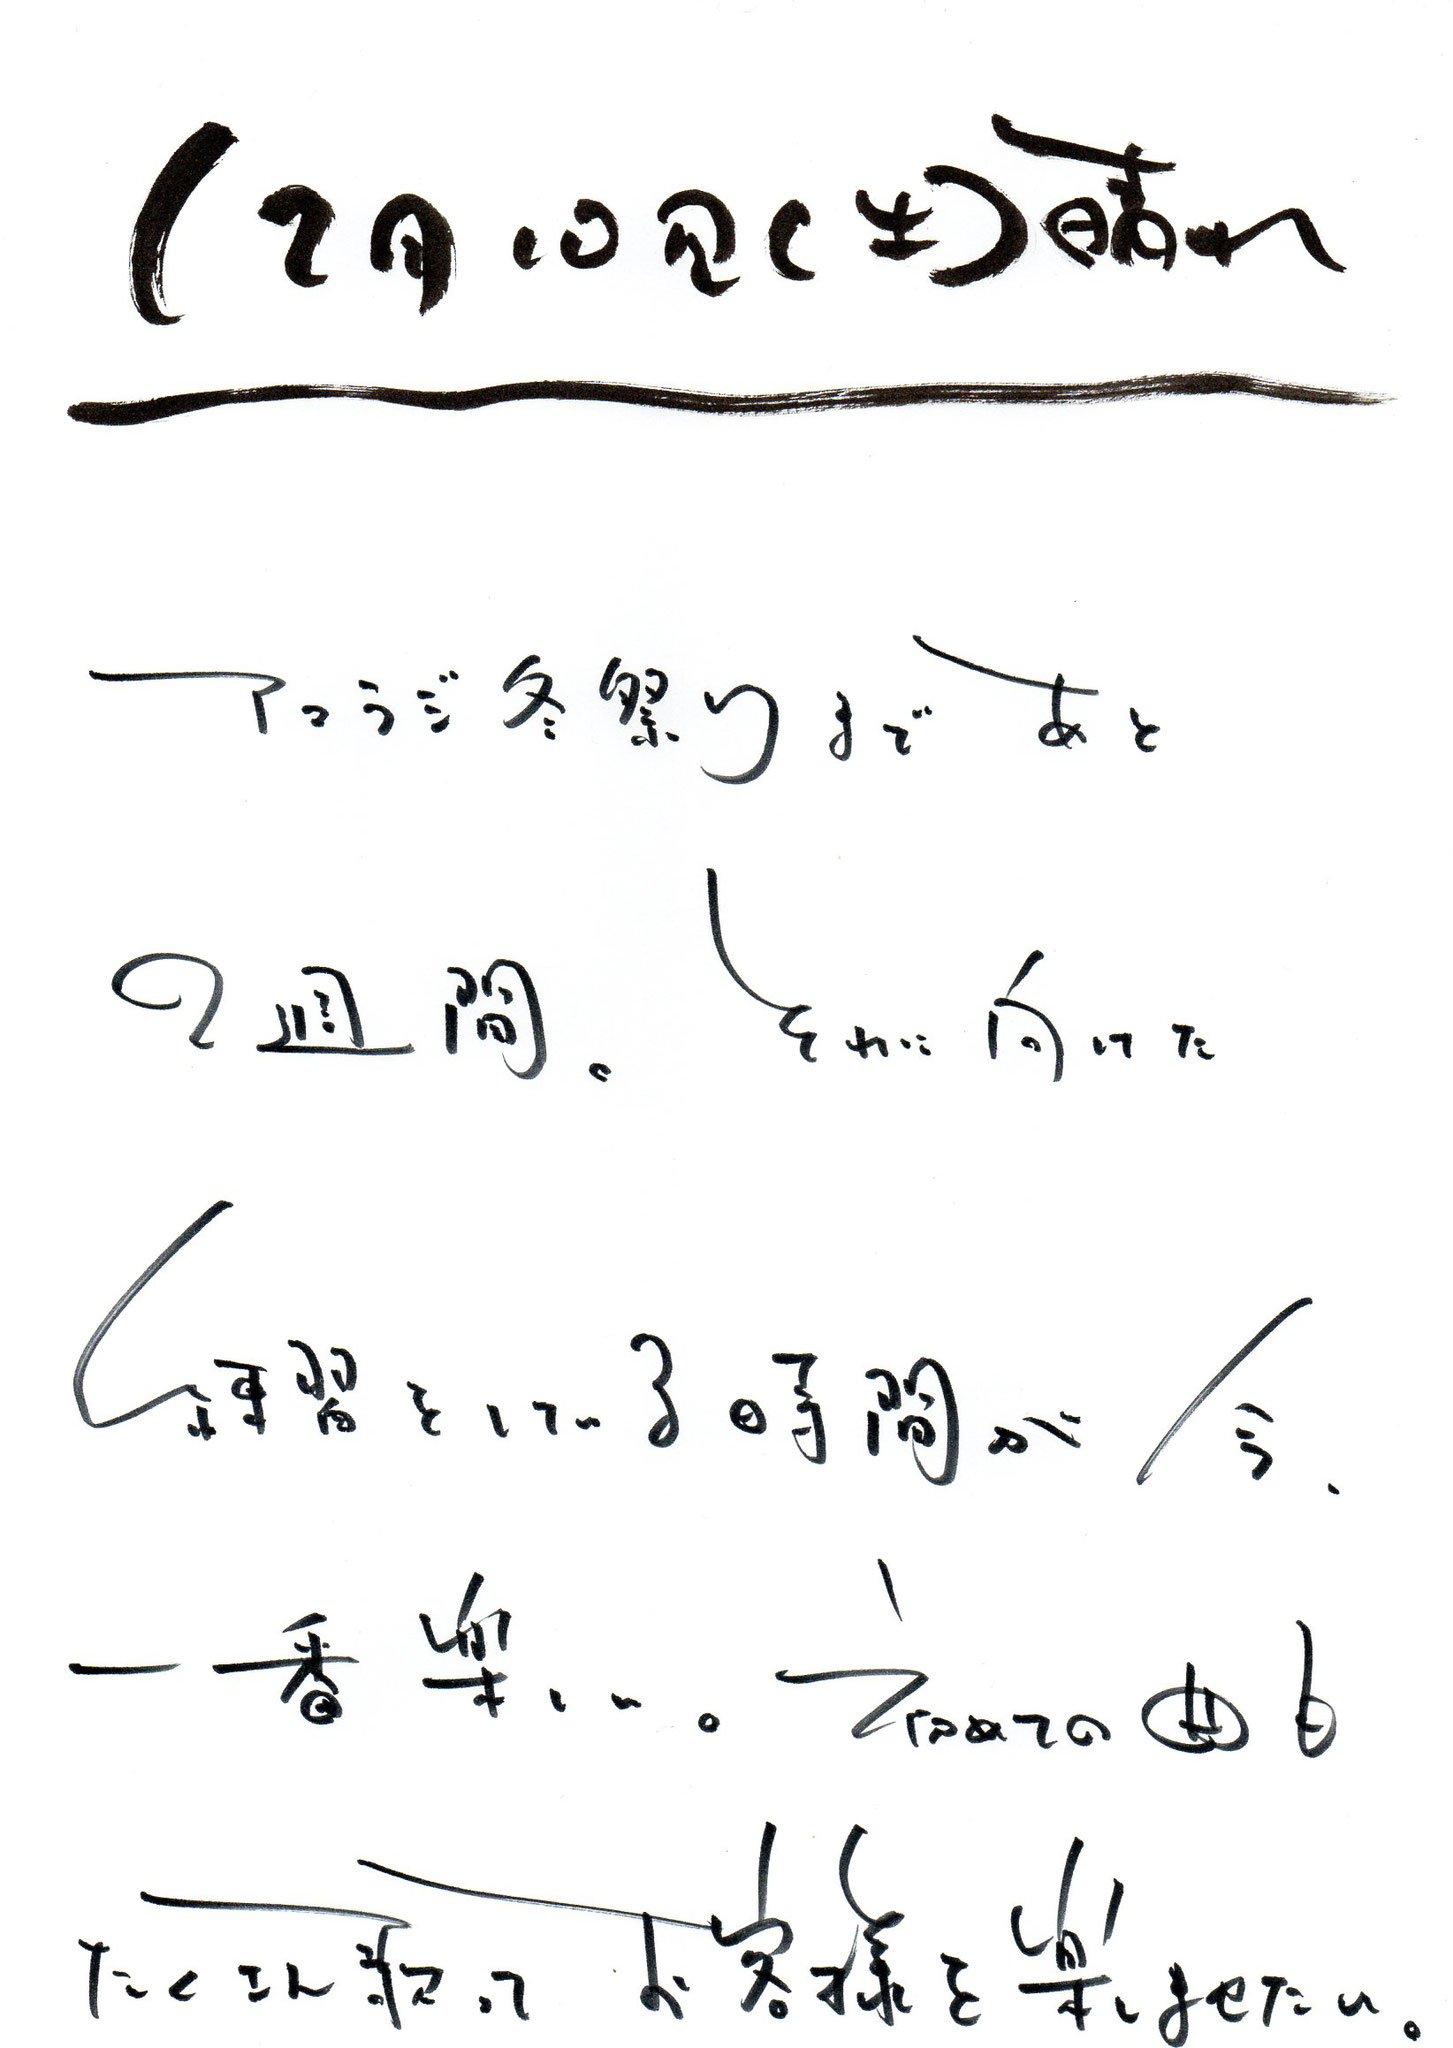 12月10日(土)晴れ
アコラジ冬祭りまで あと
2週間。 それに向けた
練習をしている時間が 今、
一番楽しい。 初めての曲も
たくさん歌って お客様を楽しませたい。